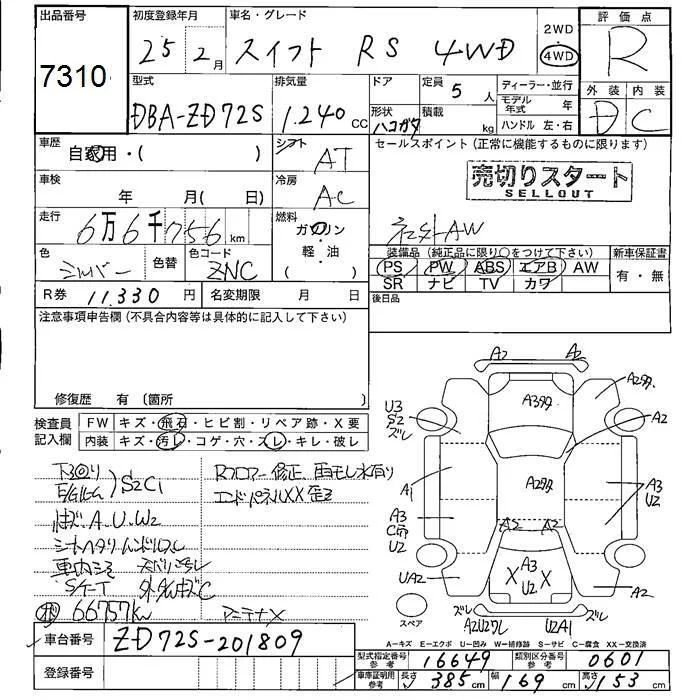 出品番号 初度登録年月 車名・グレード 2WD 評価点
7310 25 2月 スイフト RS 4WD 4WD R
型式 排気量 ドア 定員 5人 ディーラー・並行 外装 内装
DBA-ZD72S 1.240 CC 形状 ハコガタ 積載 kg モデル年式 年 D C
ハンドル 左・右
車歴 自家用・( ) シフト AT セールスポイント (正常に機能するものに限ります)
車検 年 月( 日) 冷房 AC 売切りスタート
SELLOUT
走行 6万6千756km 燃料 ガソリン 軽・油 ( ) 社外AW
色 シルバー 色替 色コード ZNC 装備品 (純正品に限り○をつけて下さい) 新車保証書
PS PW ABS エアB AW 有・無
SR ナビ TV カワ
R券 11.330円 名変期限 月 日 後日品
注意事項申告欄 (不具合内容等は具体的に記入して下さい)
修復歴 有 (箇所
検査員記入欄 FW キズ・飛石・ヒビ割・リペア跡・X要
内装 キズ・汚レ・コゲ・穴・スレ・キレ・破レ
A2 A2
A3多 A2多
U3 S2 ズレ A2
A1 A2多 A3 U2
A3 U2 A2 A2
UA2 A3 U2 X X A2
スペア ズレ ズレ
A2U2ワレ U2A1
下回り S2C1 Rフロアー修正、雨もレ水有り
エンドパネルXX歪ミ
A.U.W2
66757km アンテナX
A-キズ E-エクボ U-凹み W-補修跡 S-サビ C-腐食 XX-交換済
車台番号 ZD72S-201809
型式指定番号 参考 16649 類別区分番号 参考 0601
登録番号 車庫証明用 参考 長さ 385cm 幅 169cm 高さ 153cm